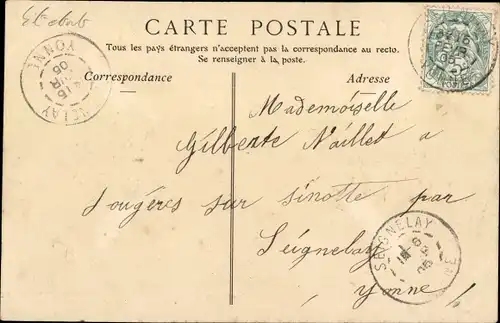 CARTE POSTALE
Tous les pays étrangers n'acceptent pas la correspondance au recto.
Se renseigner à la poste.
Correspondance
Adresse
Mademoiselle
Gilberte Naillet a
Sougères sur sinotte par
Seignelay
Yonne
YONNE
15
05
SEIGNELAY
6
05